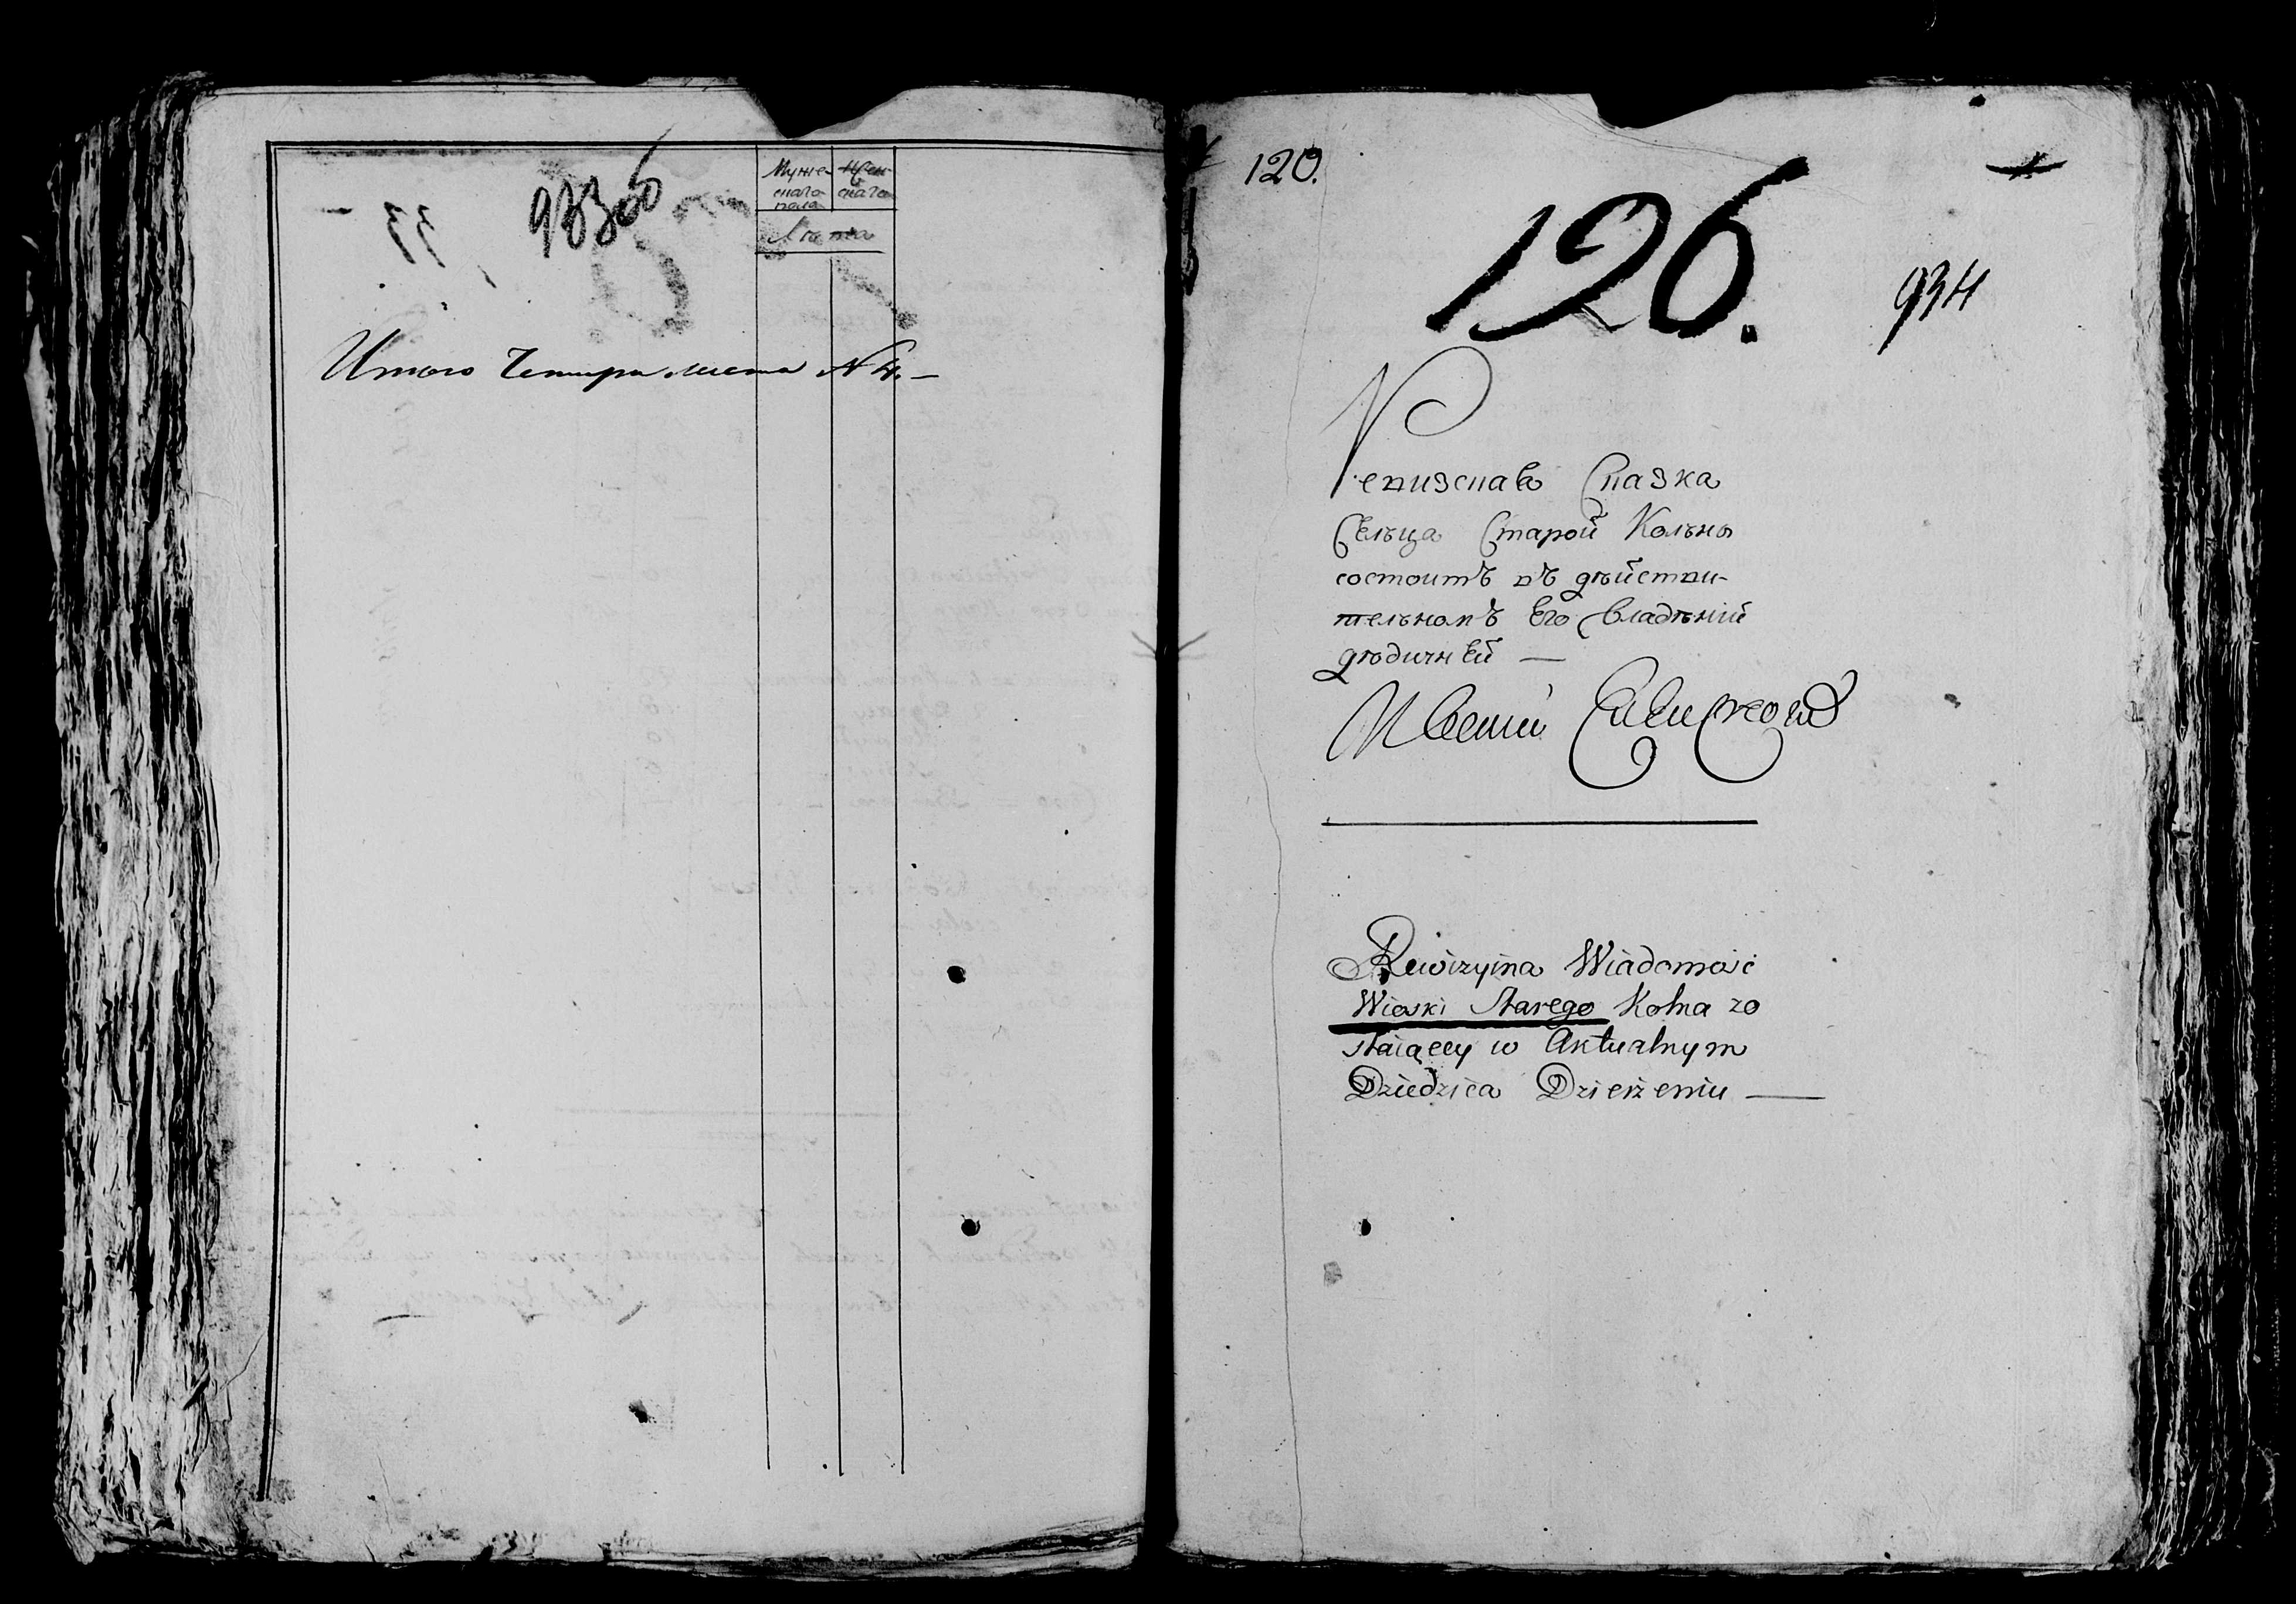 933об
Мужескаго пола
Женскаго
Лѣта
Итого Четыри листа N 4. –
120.
126.
934
Ревизская Сказка
Сельца Старой Кольны
состоитъ въ дѣйстви-
тельномъ Его Владѣнiй
дѣдичнѣй —
Rewizyina Wiadomość
Wioski Starego Kolna zo
staiącey w Aktualnym
Dziedzica Dzierżeniu —